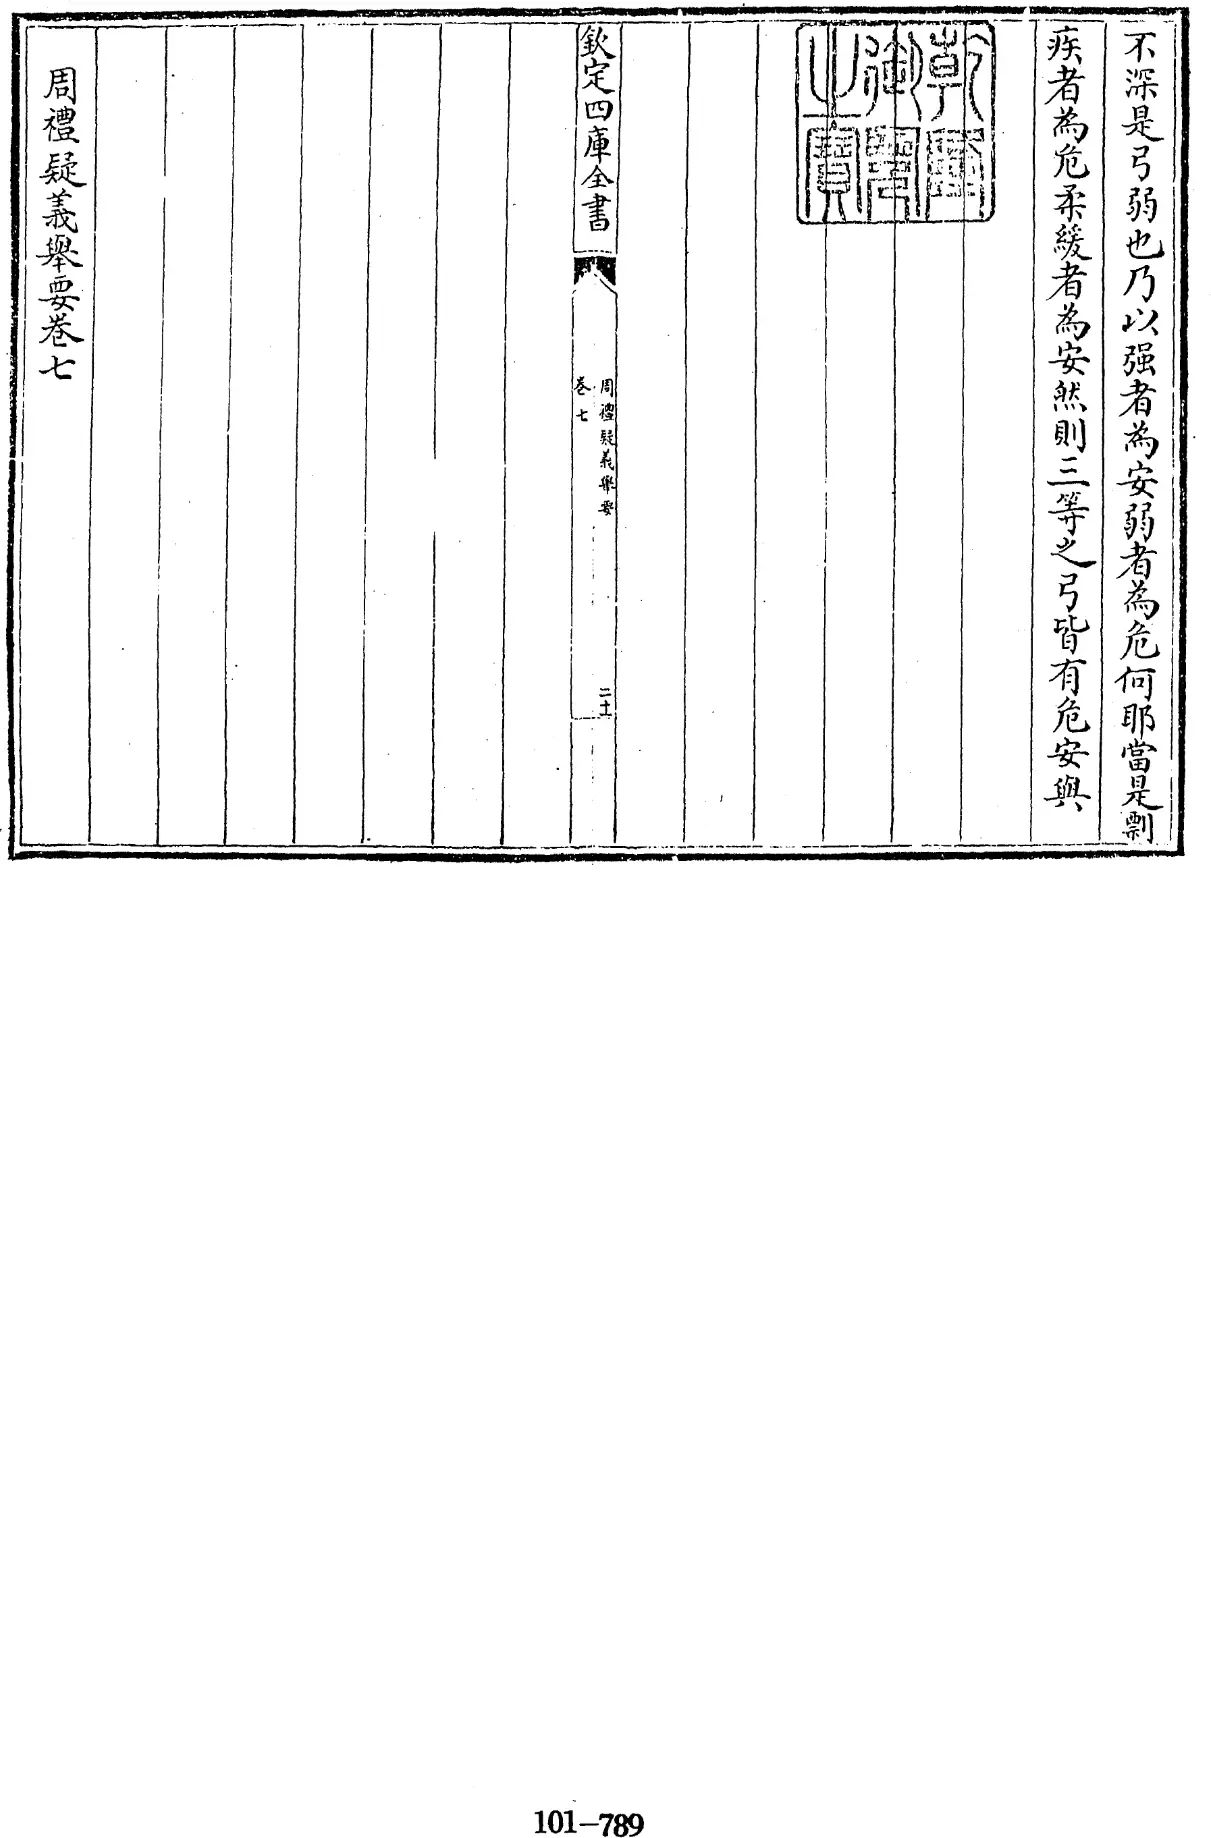 不深是弓弱也乃以强者為安弱者為危何耶當是剽
疾者為危柔緩者為安然則三等之弓皆有危安與
乾隆御覽之寶
欽定四庫全書
周禮疑義舉要
卷七
二十
周禮疑義舉要卷七
101-789